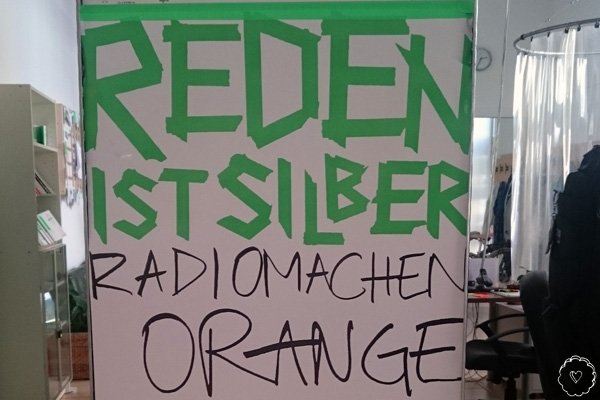 REDEN
IST SILBER
RADIOMACHEN
ORANGE